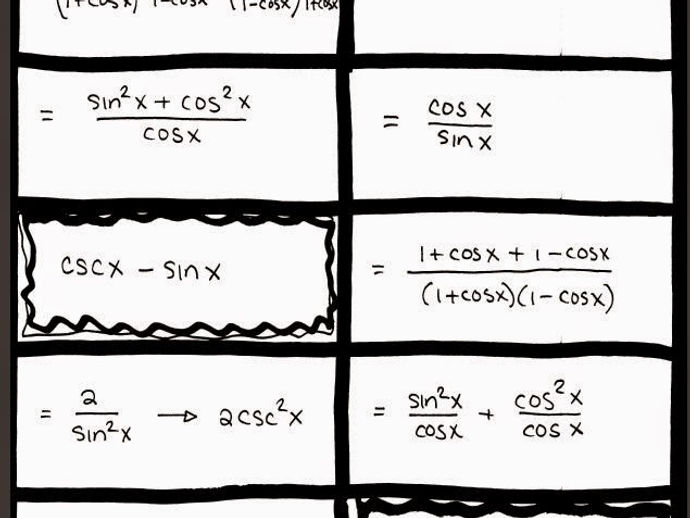 (1+cosx) 1-cosx (1-cosx) 1+cosx
= sin²x + cos²x / cosx
= cos x / sin x
cscx - sinx
= 1+cosx + 1-cosx / (1+cosx)(1-cosx)
= 2 / sin²x → 2csc²x
= sin²x / cosx + cos²x / cos x